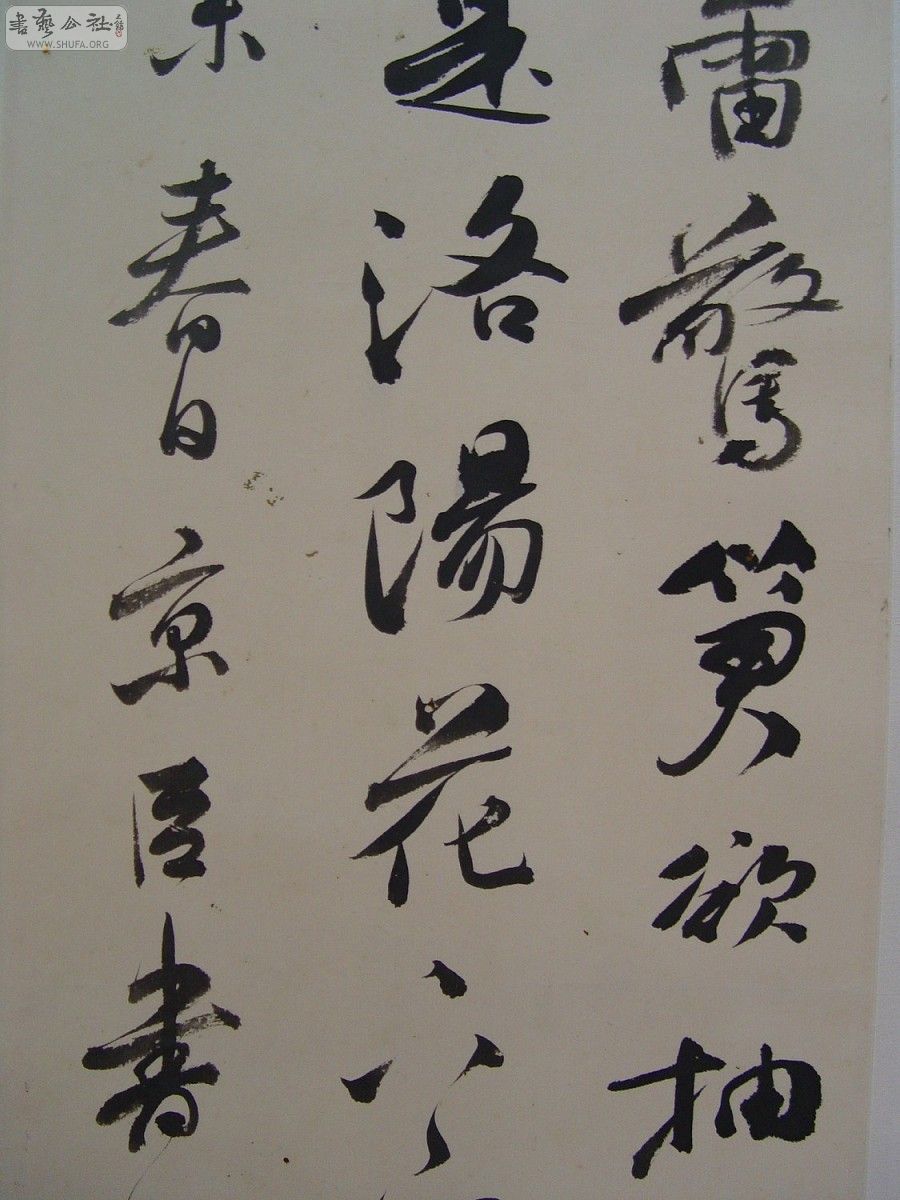 書藝公社
WWW.SHUFA.ORG
雷驚笋欲抽
是洛陽花下
未春日京臣書